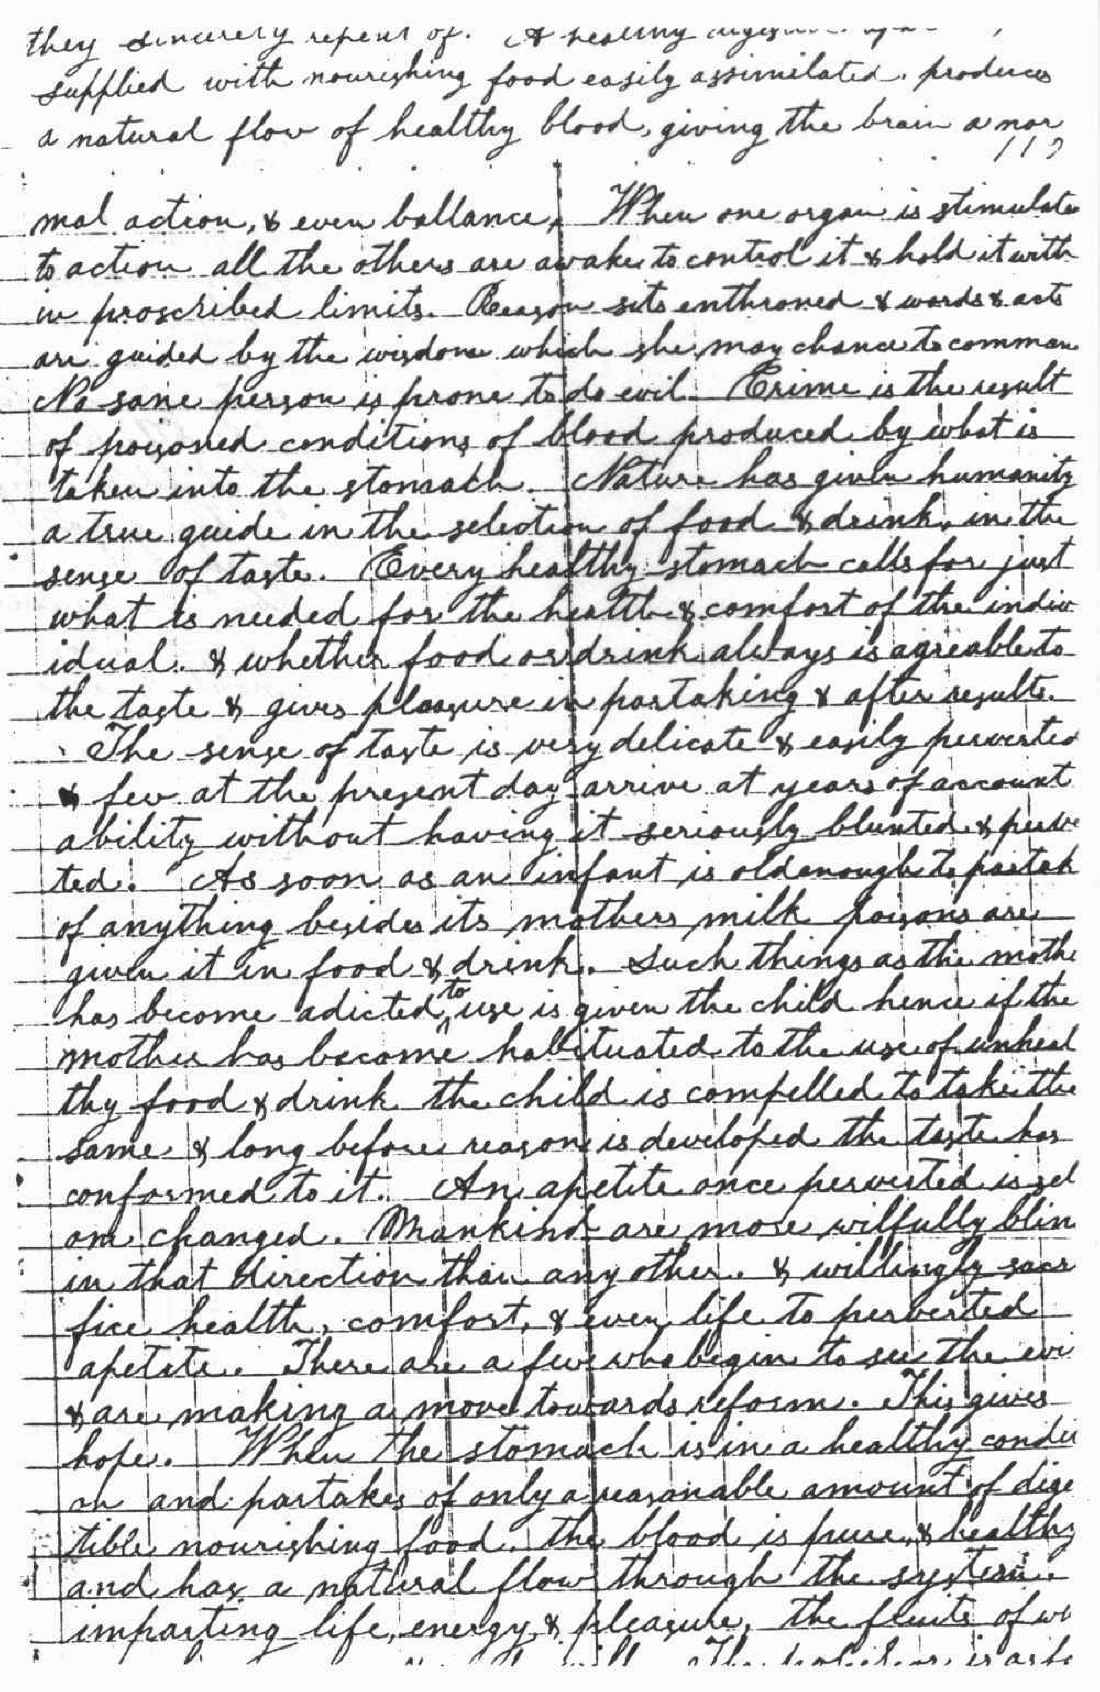 they sincerely repent of. A healthy
supplied with nourishing food easily assimilated. produces
a natural flow of healthy blood, giving the brain a nor
mal action, & even ballance. When one organ is stimulate
to action all the others are awake to control it & hold it with
in proscribed limits. Reason sits enthroned & words & acts
are guided by the wisdom which she may chance to comman
No sane person is prone to do evil. Crime is the result
of poisoned conditions of blood produced by what is
taken into the stomach. Nature has given humanity
a true guide in the selection of food & drink, in the
sense of taste. Every healthy stomach calls for just
what is needed for the health & comfort of the indiv
idual. & whether food or drink always is agreable to
the taste & gives pleasure in partaking & after results.
The sense of taste is very delicate & easily perverted
& few at the present day arrive at years of account
ability without having it seriously blunted & perve
ted. As soon as an infant is old enough to partak
of anything besides its mothers milk poisons are
given it in food & drink. Such things as the mothe
has become adicted to use is given the child hence if the
mother has become habituated to the use of unheal
thy food & drink the child is compelled to take the
same & long before reason is developed the taste has
conformed to it. An apetite once perverted is sel
om changed. Mankind are more wilfully blin
in that direction than any other. & willingly sacr
fice health, comfort, & even life to perverted
apetite. There are a few who begin to see the evi
& are making a move towards reform. This gives
hope. When the stomach is in a healthy condi
on and partakes of only a reasonable amount of dige
tible nourishing food, the blood is pure, & healthy
and has a natural flow through the system.
imparting life, energy, & pleasure, the fruits of